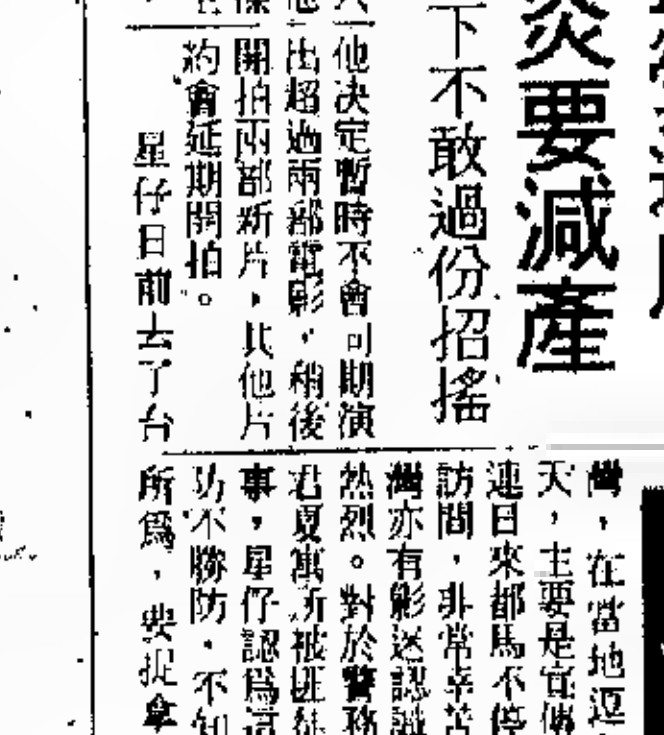 炎要減產
下不敢過份招搖
他決定暫時不會同期演
出超過兩部電影，稍後
開拍兩部新片，其他片
約會延期開拍。
星仔日前去了台
灣，在當地逗
天，主要是宣傳
連日來都馬不停
訪問，非常辛苦
灣亦有影迷認識
熱烈。對於警務
君夏寓所被匪徒
事，星仔認爲這
防不勝防，不知
所爲，要捉拿